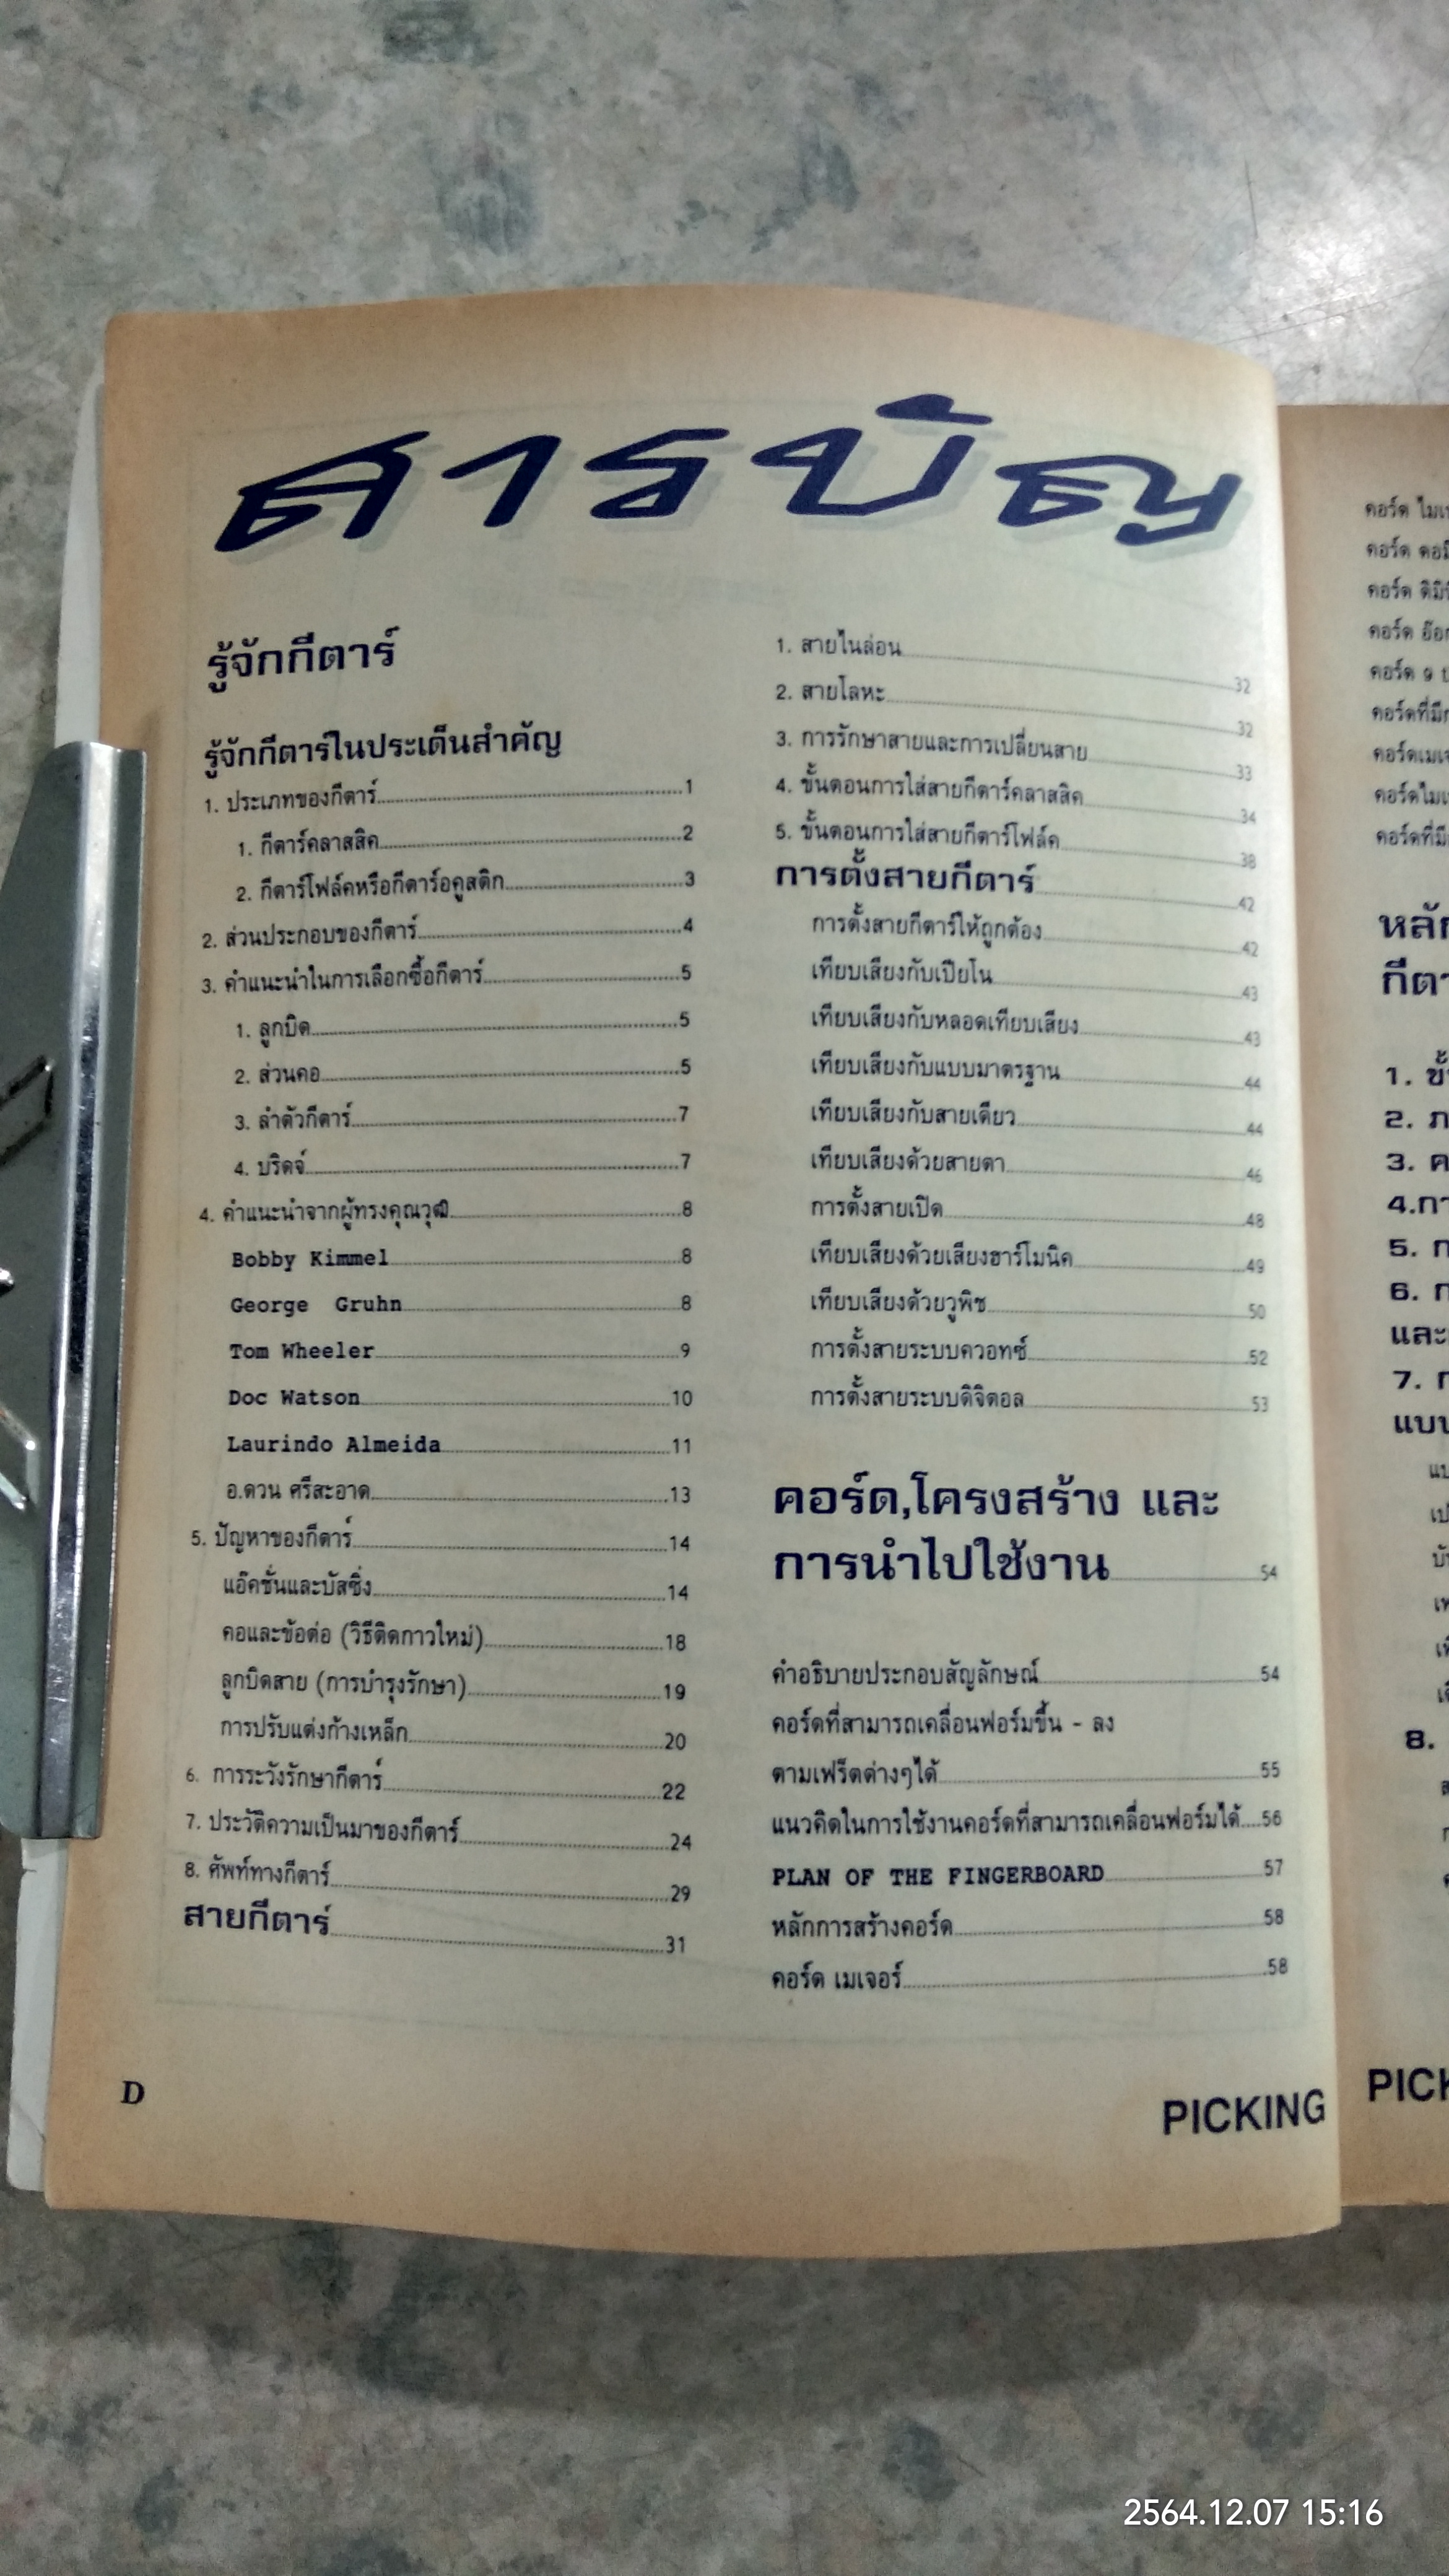 สารบัญ
รู้จักกีตาร์
รู้จักกีตาร์ในประเด็นสำคัญ
1. ประเภทของกีตาร์ 1
1. กีตาร์คลาสสิค 2
2. กีตาร์โฟล์คหรือกีตาร์อคูสติก 3
2. ส่วนประกอบของกีตาร์ 4
3. คำแนะนำในการเลือกซื้อกีตาร์ 5
1. ลูกบิด 5
2. ส่วนคอ 5
3. ลำตัวกีตาร์ 7
4. บริดจ์ 7
4. คำแนะนำจากผู้ทรงคุณวุฒิ 8
Bobby Kimmel 8
George Gruhn 8
Tom Wheeler 9
Doc Watson 10
Laurindo Almeida 11
อ.ดวน ศรีสะอาด 13
5. ปัญหาของกีตาร์ 14
แอ๊คชั่นและบัสซิ่ง 14
คอและข้อต่อ (วิธีติดกาวใหม่) 18
ลูกบิดสาย (การบำรุงรักษา) 19
การปรับแต่งก้างเหล็ก 20
6. การระวังรักษากีตาร์ 22
7. ประวัติความเป็นมาของกีตาร์ 24
8. ศัพท์ทางกีตาร์ 29
สายกีตาร์ 31
1. สายไนล่อน 32
2. สายโลหะ 32
3. การรักษาสายและการเปลี่ยนสาย 33
4. ขั้นตอนการใส่สายกีตาร์คลาสสิค 34
5. ขั้นตอนการใส่สายกีตาร์โฟล์ค 38
การตั้งสายกีตาร์ 42
การตั้งสายกีตาร์ให้ถูกต้อง 42
เทียบเสียงกับเปียโน 43
เทียบเสียงกับหลอดเทียบเสียง 43
เทียบเสียงกับแบบมาตรฐาน 44
เทียบเสียงกับสายเดียว 44
เทียบเสียงด้วยสายตา 46
การตั้งสายเปิด 48
เทียบเสียงด้วยเสียงฮาร์โมนิค 49
เทียบเสียงด้วยวูพิช 50
การตั้งสายระบบควอทซ์ 52
การตั้งสายระบบดิจิตอล 53
คอร์ด,โครงสร้าง และ
การนำไปใช้งาน 54
คำอธิบายประกอบสัญลักษณ์ 54
คอร์ดที่สามารถเคลื่อนฟอร์มขึ้น - ลง
ตามเฟร็ตต่างๆได้ 55
แนวคิดในการใช้งานคอร์ดที่สามารถเคลื่อนฟอร์มได้ 56
PLAN OF THE FINGERBOARD 57
หลักการสร้างคอร์ด 58
คอร์ด เมเจอร์ 58
D
PICKING
คอร์ด
คอร์ด
คอร์ด
คอร์ด
คอร์ด 9
1.
2.
3.
4.
5.
6.
และ
7.
8.
2564.12.07 15:16